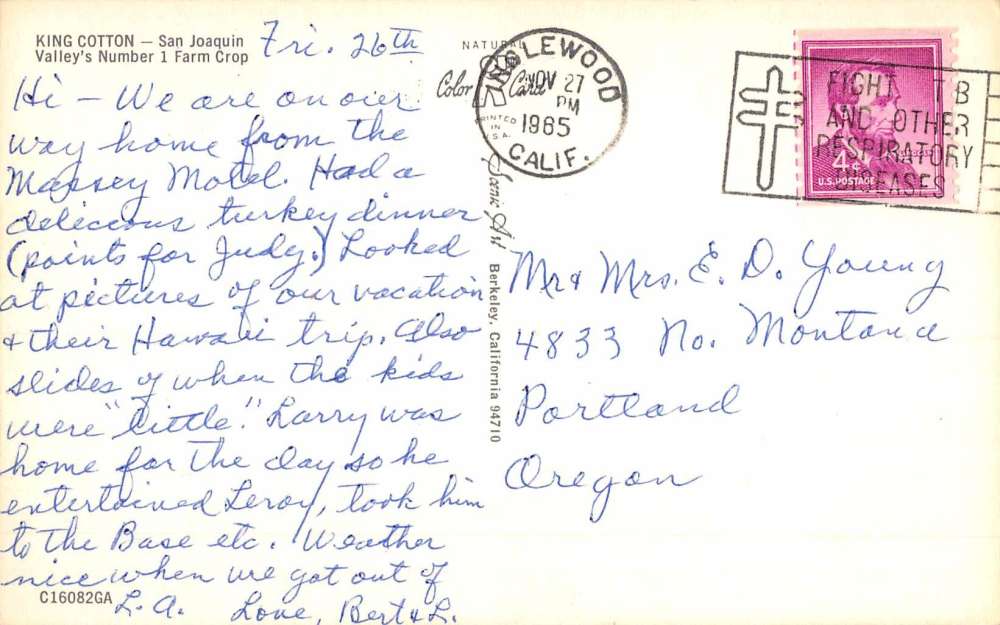 KING COTTON — San Joaquin
Valley's Number 1 Farm Crop
Fri. 26th
Hi - We are on our
way home from the
Massey Motel. Had a
delicious turkey dinner
(points for Judy.) Looked
at pictures of our vacation
& their Hawaii trip. Also
slides of when the kids
were "little". Larry was
home for the day so he
entertained Leroy, took him
to the Base etc. Weather
nice when we got out of
L.A. Love, Bert & L.
C16082GA
NATURAL
Color Card
PRINTED
IN
U.S.A.
Scenic Art
Berkeley, California 94710
INGLEWOOD
NOV 27
PM
1965
CALIF.
FIGHT TB
AND OTHER
RESPIRATORY
DISEASES
4¢
U.S. POSTAGE
Mr & Mrs. E. D. Young
4833 No. Montana
Portland
Oregon